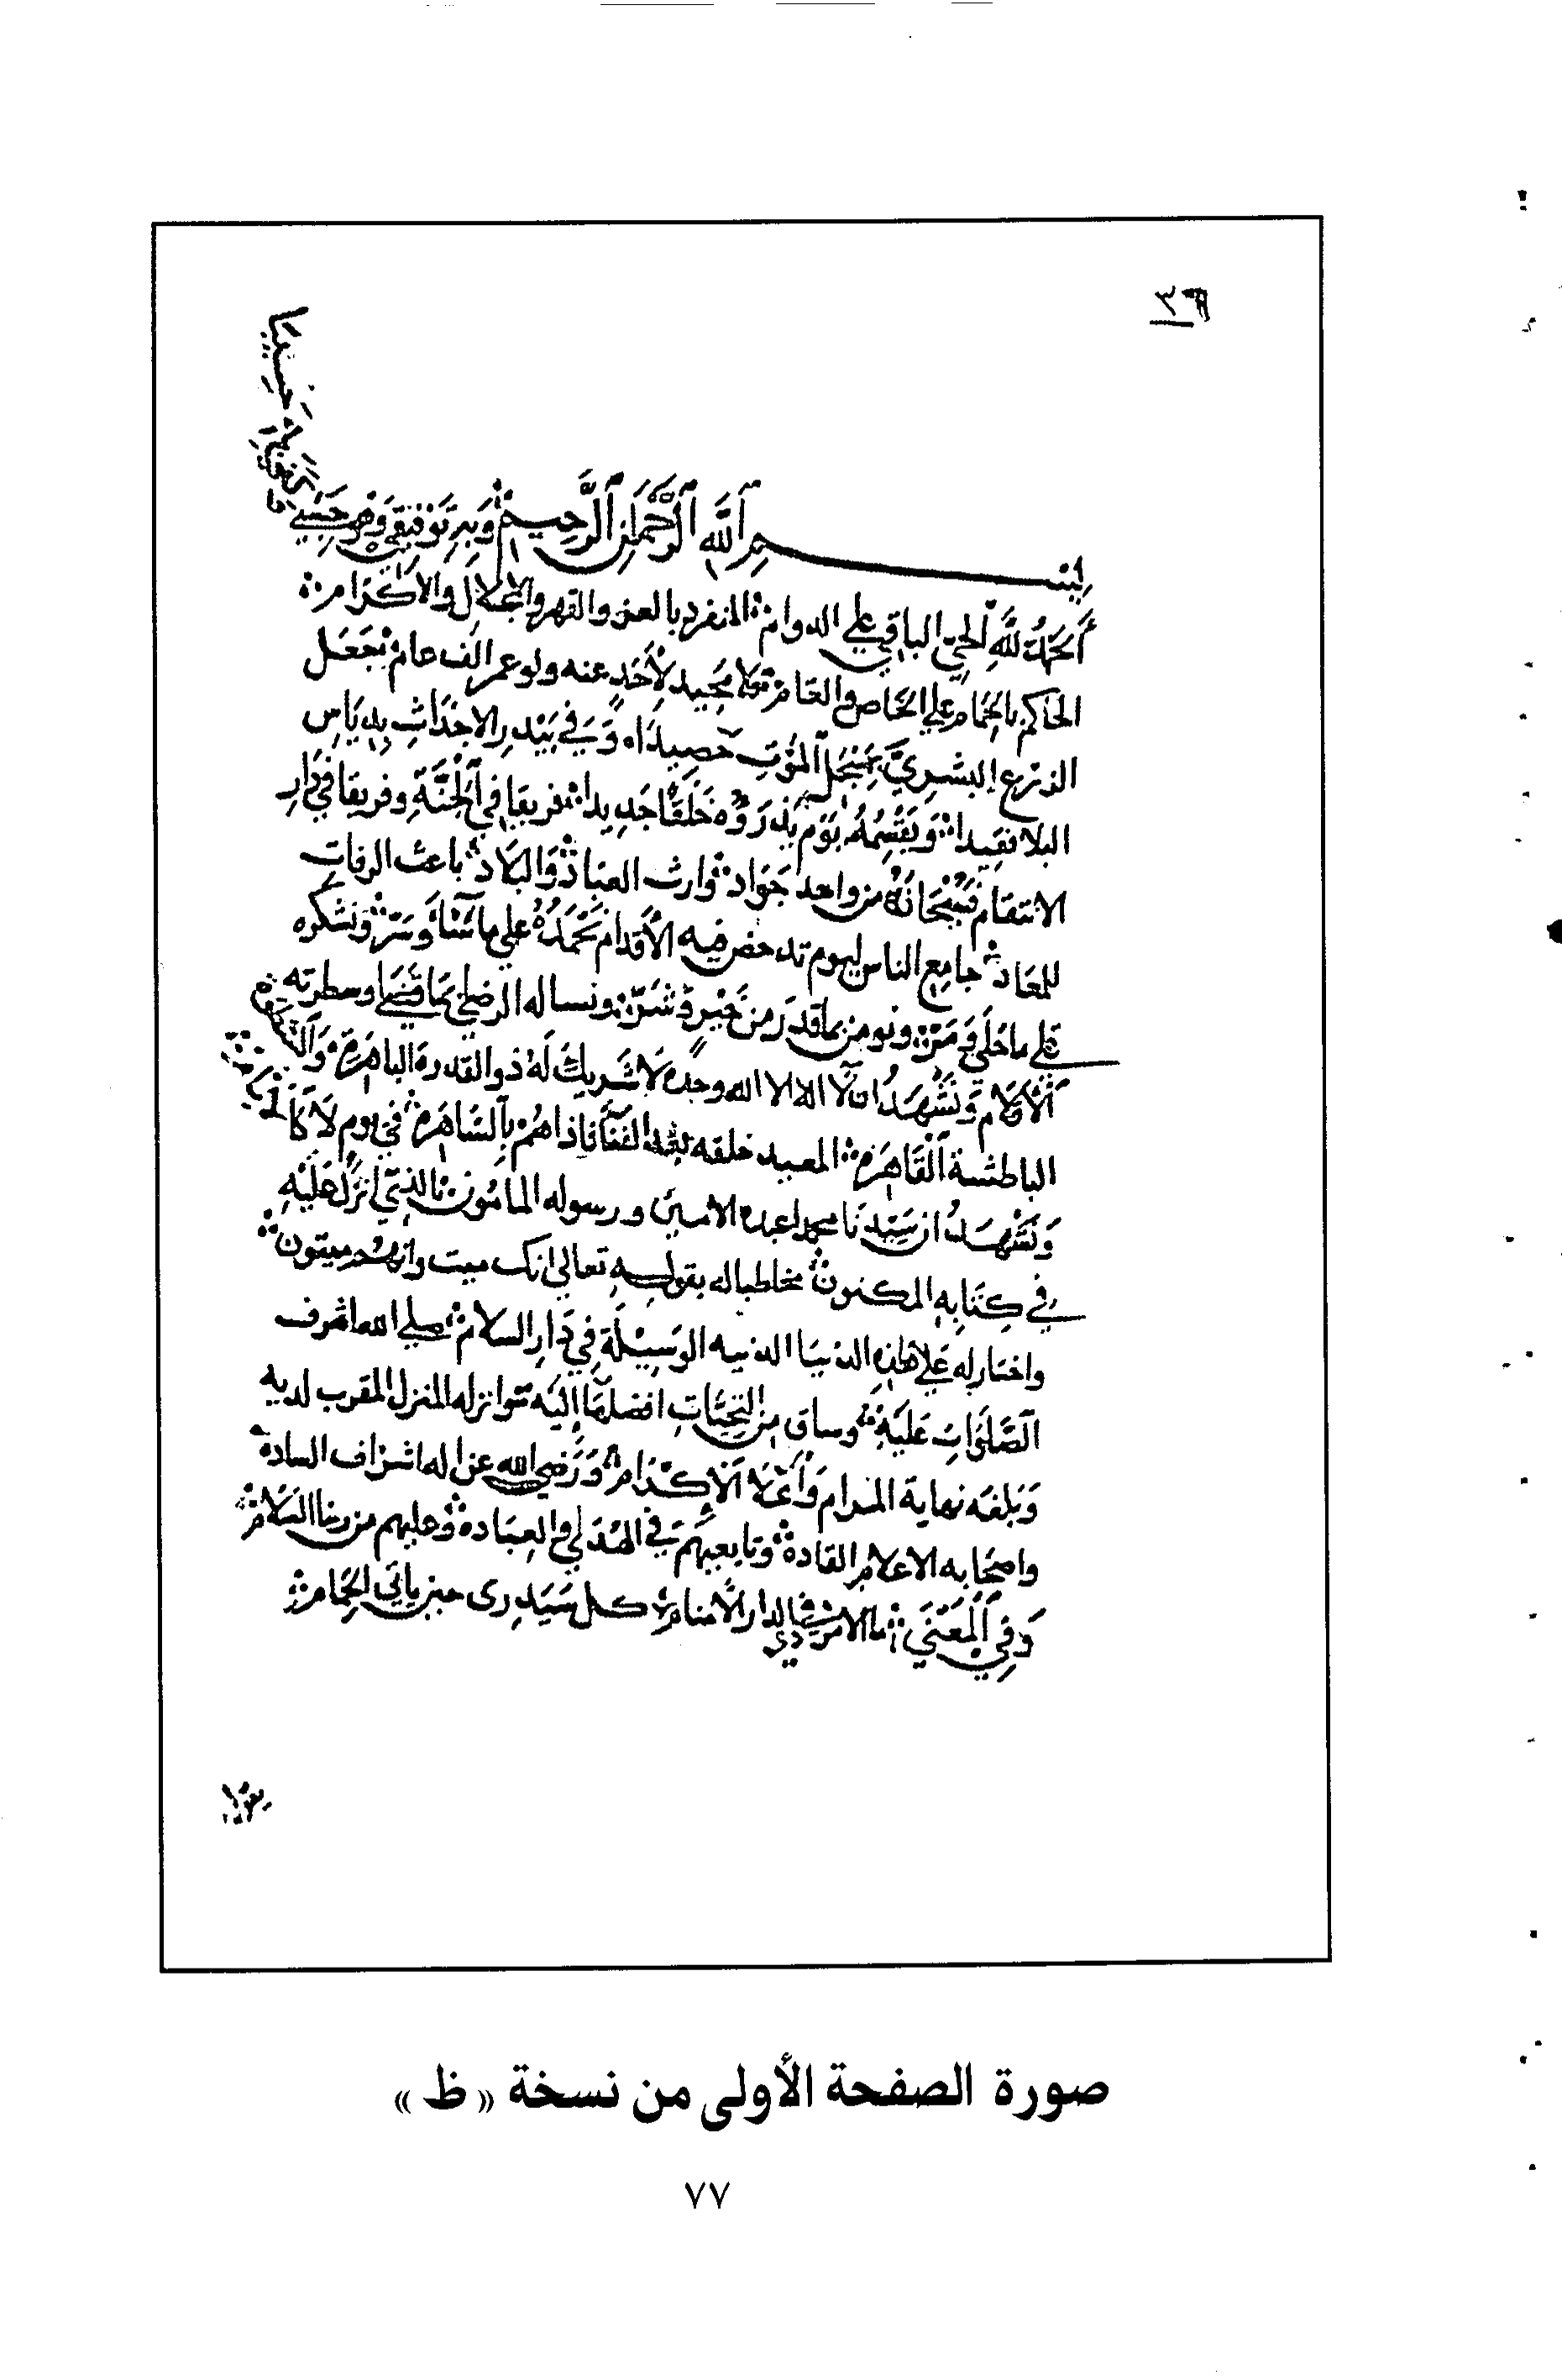 ٣٦
بِسْمِ اللَّهِ الرَّحْمَٰنِ الرَّحِيمِ وَبِهِ تَوْفِيقِي وَهُوَ حَسْبِي
اَلْحَمْدُ لِلَّهِ الْحَيِّ الباقي علي الدوام المنفرد بالعز والقهر والاجلال والاكرام
الحاكم بالحمام علي الخاص والعام فلا محيد لأحدٍ عنه ولو عمر الف عام جعل
الزرع البشري بمنجل الموت حصيدا وفي بيدر الاجداث بدياس
البلا نقيدا ويقسمه يوم يذروه خلقا جديدا فريقا في الجنة وفريقا في دار
الانتقام فسبحانه من واحد جواد وارث العباد والبلاد باعث الرفات
للمعاد جامع الناس ليوم تدحض فيه الأقدام نحمده علي ما شاء وسر ونشكره
علي ما حلي ومر ونومن بما قدر من خير وشر ونساله الرضي بما قضي وسطرته
الأقلام ونشهد ان لا اله الا الله وحده لا شريك له ذو القدرة الباهرة
الباطشة القاهرة المعيد خلقه بعد الفناء فاذا هم بالساهرة في يوم لا كالايام
ونشهد ان سيدنا محمدا عبده الامين ورسوله المامون الذي انزل عليه
في كتابه المكنون مخاطبا له بقوله تعالي انك ميت وانهم ميتون
واختار له علي هذه الدنيا الدنيه الوسيلة في دار السلام صلي الله اشرف
الصلوات عليه وساق من التحيات افضلها إليه وانزله المنزل المقرب لديه
وبلغه نهاية المرام وأعلا الإكرام ورضي الله عن اله اشراف السادة
واصحابه الاعلام القادة وتابعيهم في الهدي والعبادة وعليهم من ربنا السلام
وفي المعنى ما لامرئ في ذي الدار الا منام كل سيدرى حين ياتي الحمام
صورة الصفحة الأولى من نسخة « ظ »
٧٧